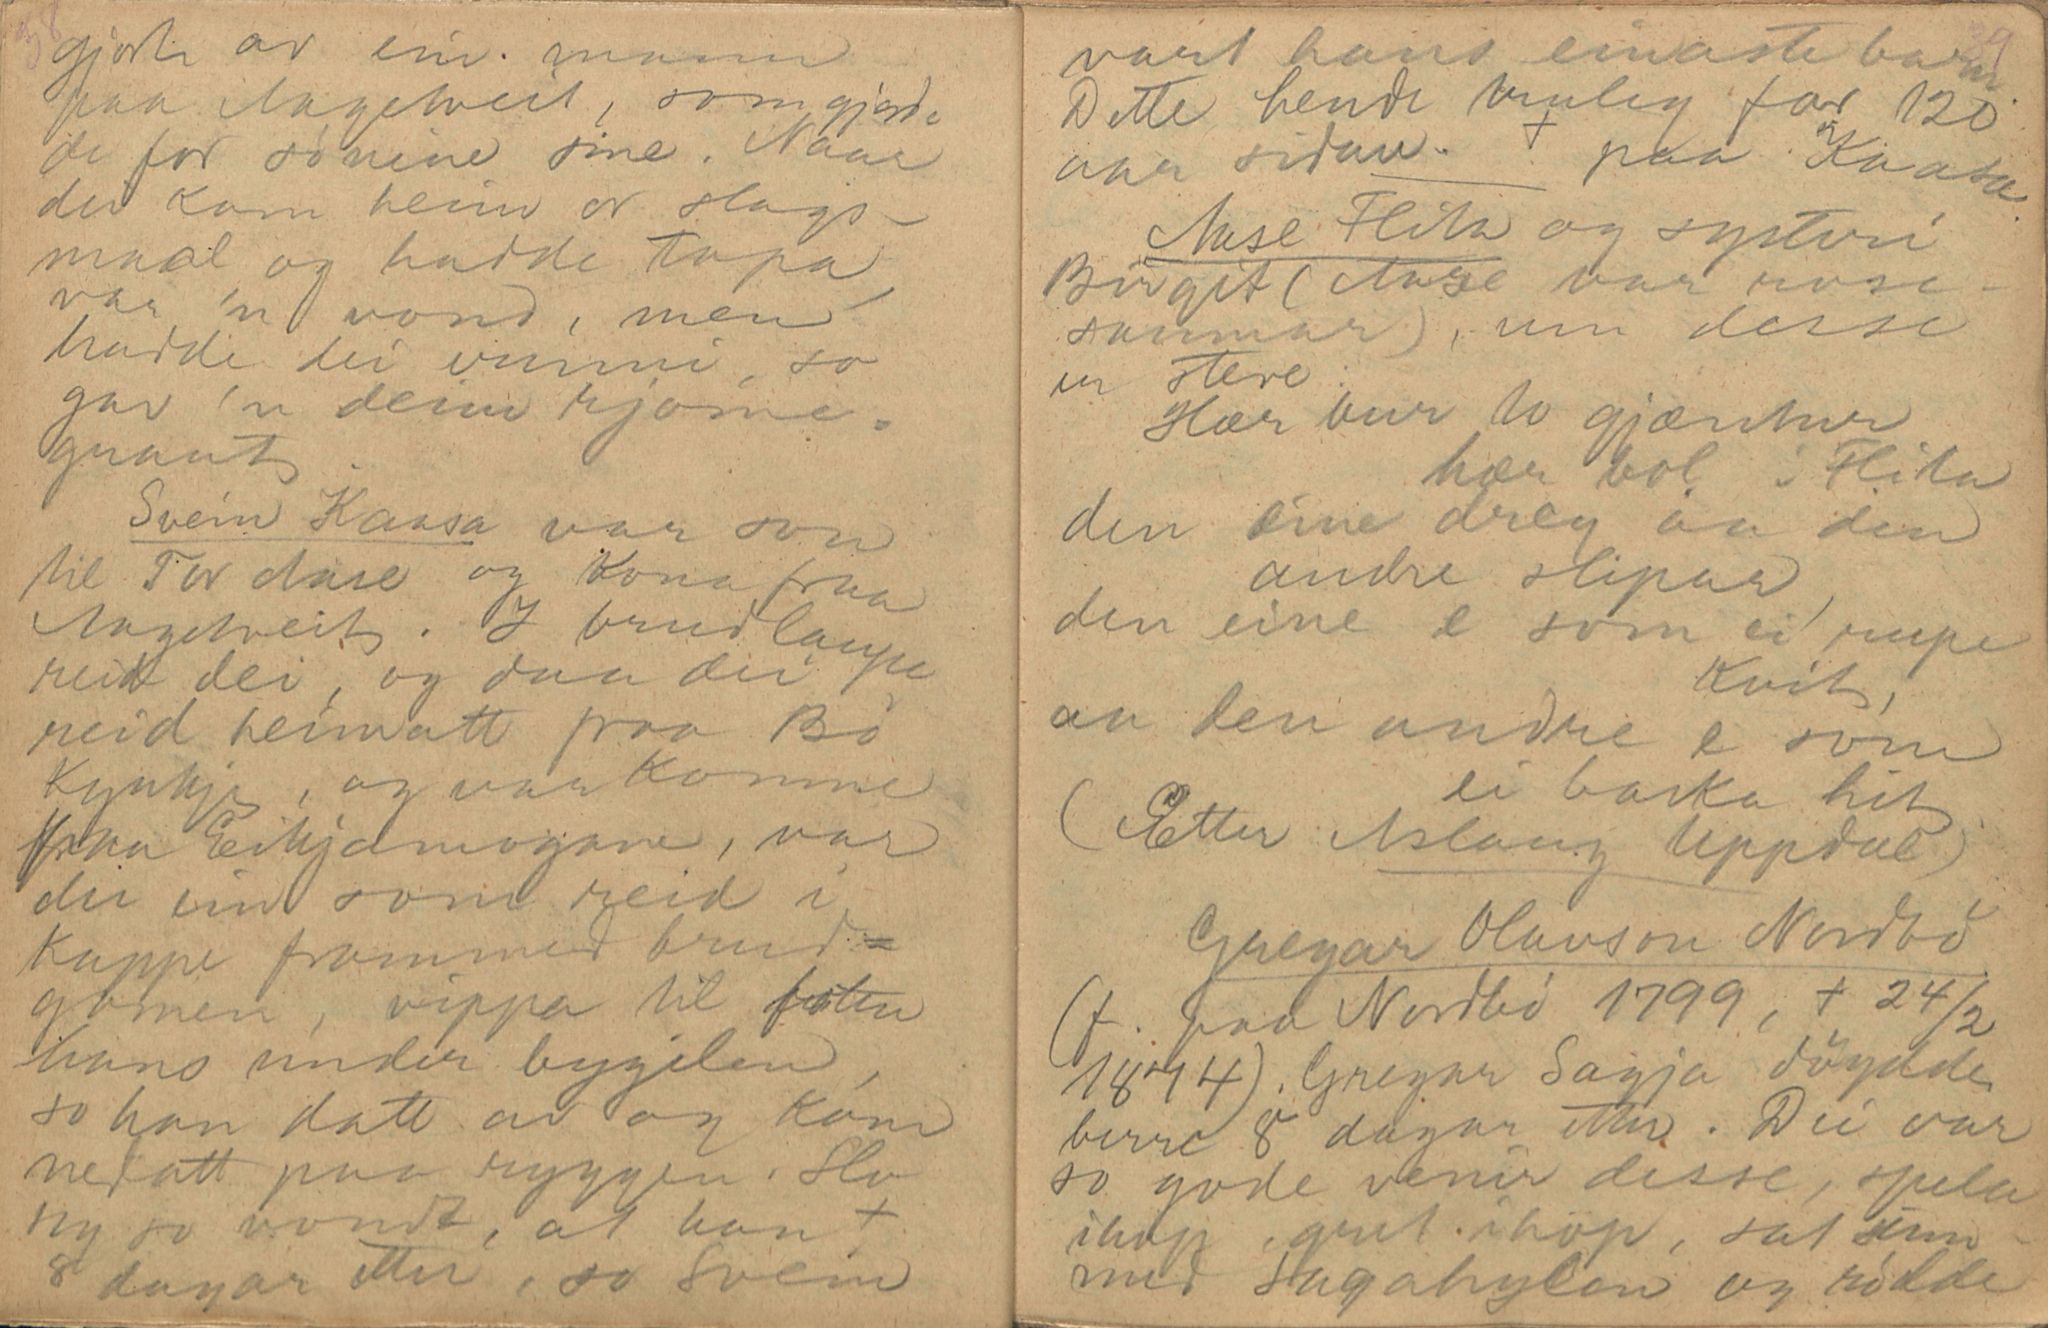 38
gjort av ein mann
paa Aagetveit, som gjord-
de for sönine sine. Naar
dei kom heim or slags-
maal og hadde tapa,
var 'n vond, men
hadde dei vunni, so
gav 'n deim rjome-
graut.
Svein Kaasa var son
til Tor Aase og Kona fraa
Aagetveit. I brudlaupe
reid dei, og daa dei
reid heimatt fraa Bö
Kyrkje, og var komne
fraa Eikjamogane, var
dei ein som reid i
Kappe frammed brud-
gomen, vippa til foten
hans under bygjelen,
so han datt av og kom
nedatt paa ryggen. Slo
seg so vondt, at han †
8 dagar etter, so Svein
39
vart hans einaste barn.
Dette hende truleg for 120
aar sidan. † paa Kaasa.
Aase Flita og systeri
Birgit (Aase var rose-
saumar), um desse
er steve:
Hær bur to gjæntur
hær bol i Flita
den eine dreg aa den
andre slipar,
den eine e som ei rupe
Kvit,
aa den andre e som
ei barka hit
(Etter Aslaug Uppdal)
Gregar Olavson Nordbö
(f. paa Nordbö 1799, † 24/2
1874). Gregar Sagja döydde
berre 8 dagar etter. Dei var
so gode venir desse, spela
ihop, gret ihop, sat inn-
med Sagahylen og rödde